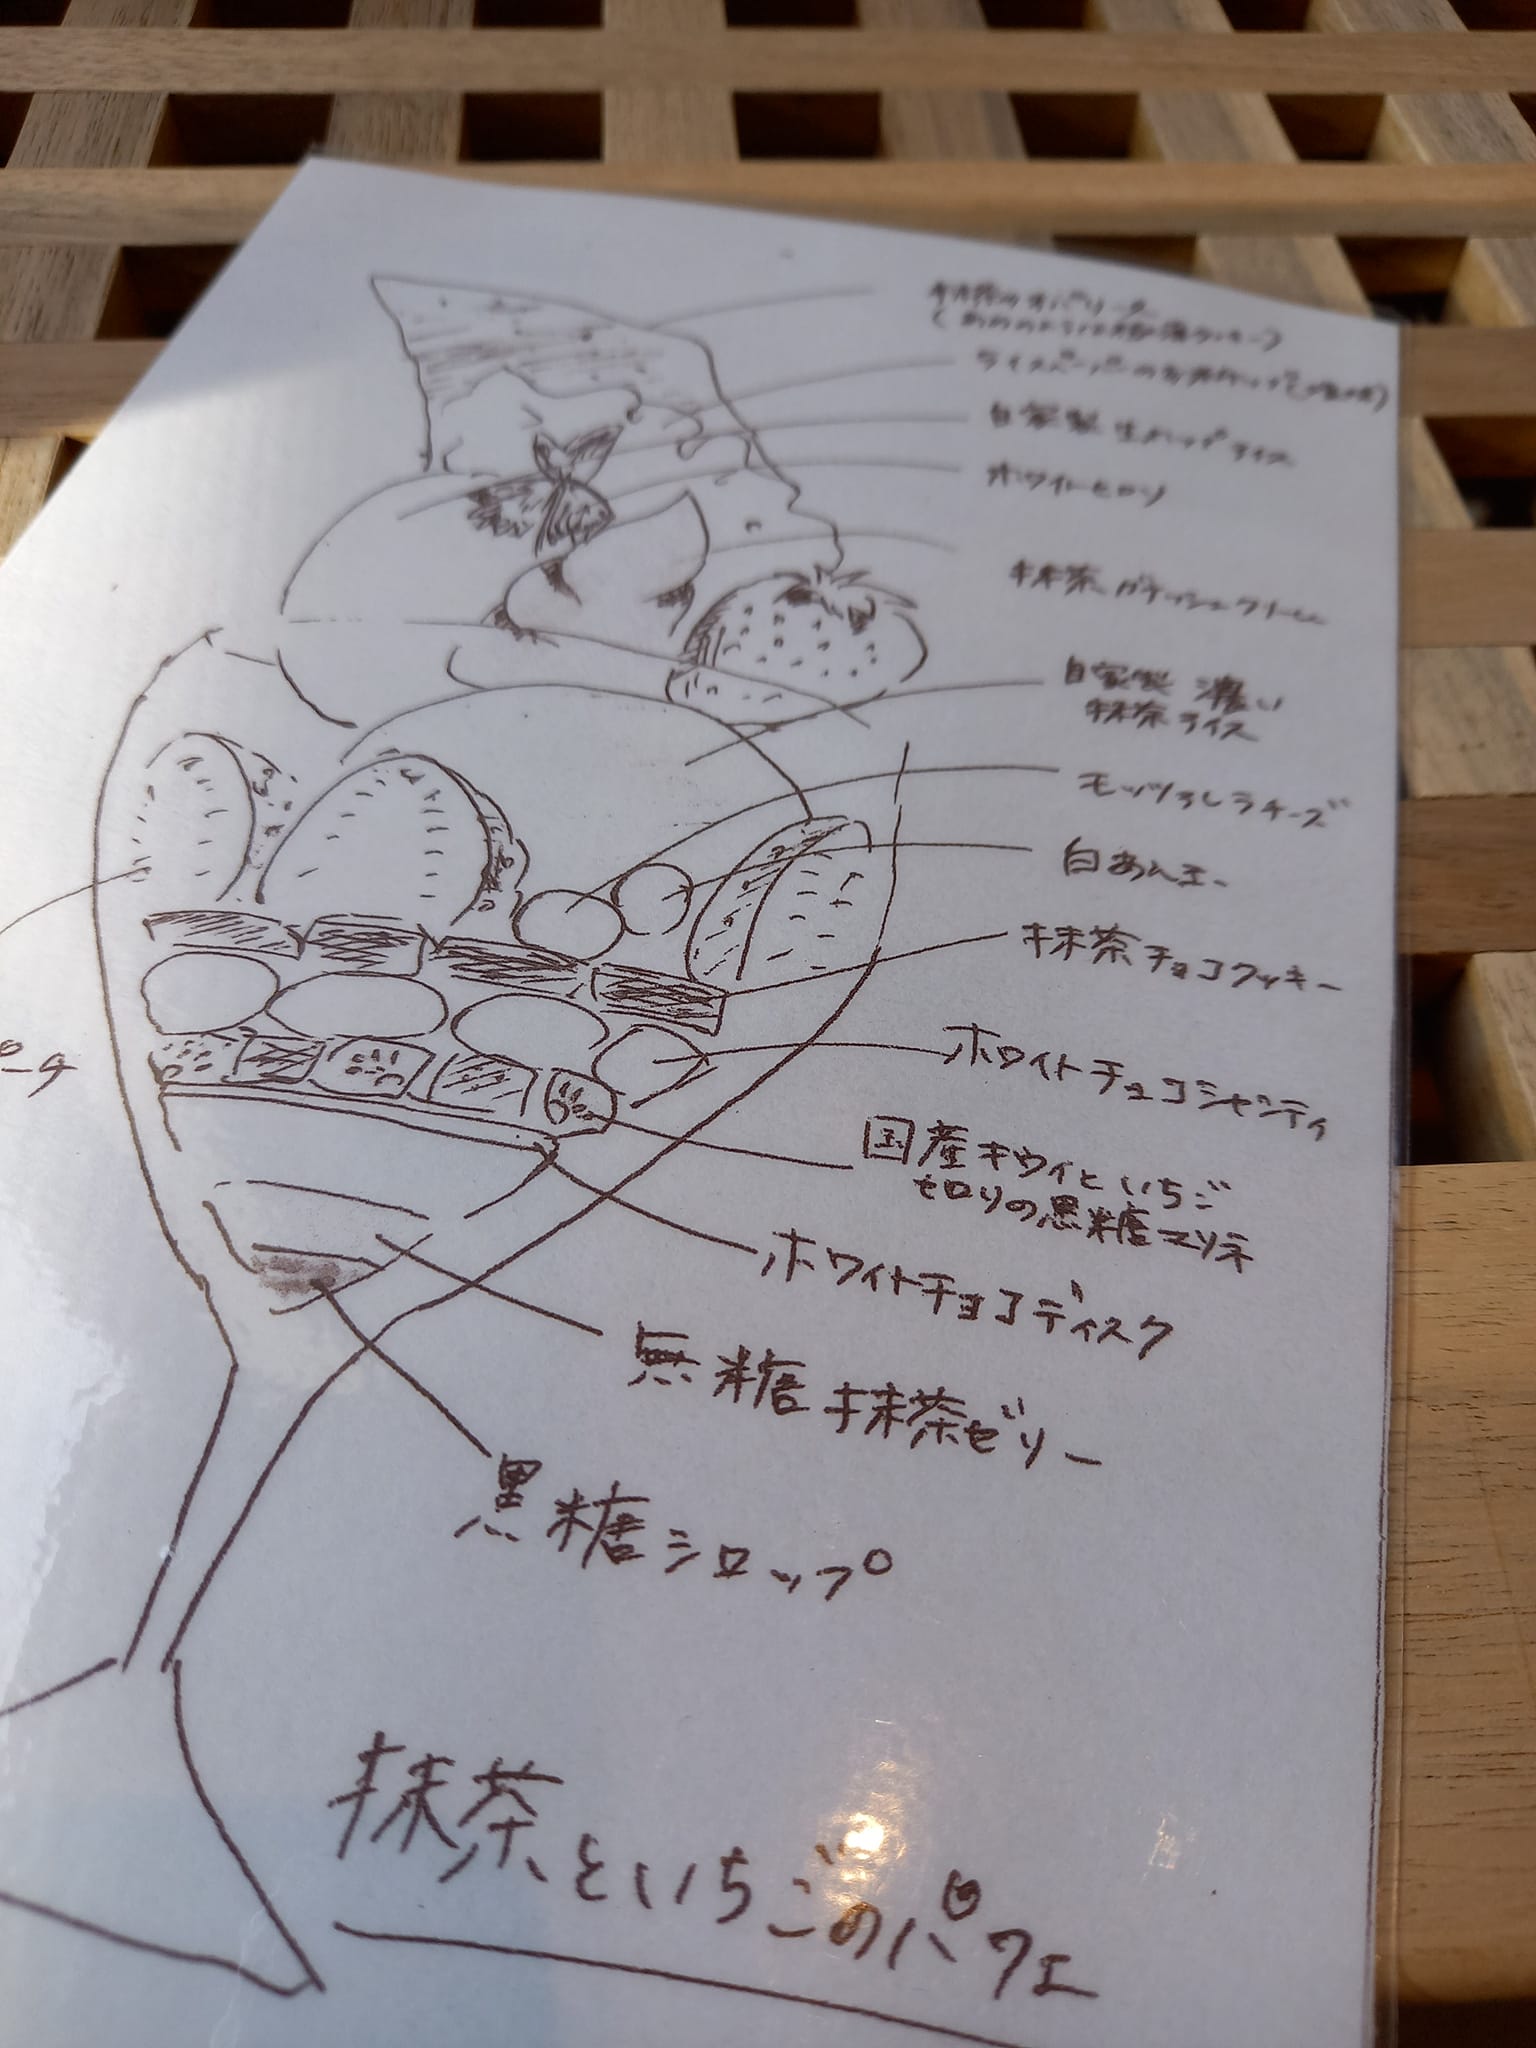 抹茶のオパリーヌ
ライスペーパーの
自家製 生 アイス
ホワイト
抹茶ガナッシュクリーム
自家製 濃い
抹茶アイス
モッツァレラチーズ
白あん玉
抹茶チョコクッキー
ホワイトチョコシャンティ
国産キウイといちご
セロリの黒糖マリネ
ホワイトチョコディスク
無糖 抹茶ゼリー
黒糖シロップ
抹茶といちごのパフェ